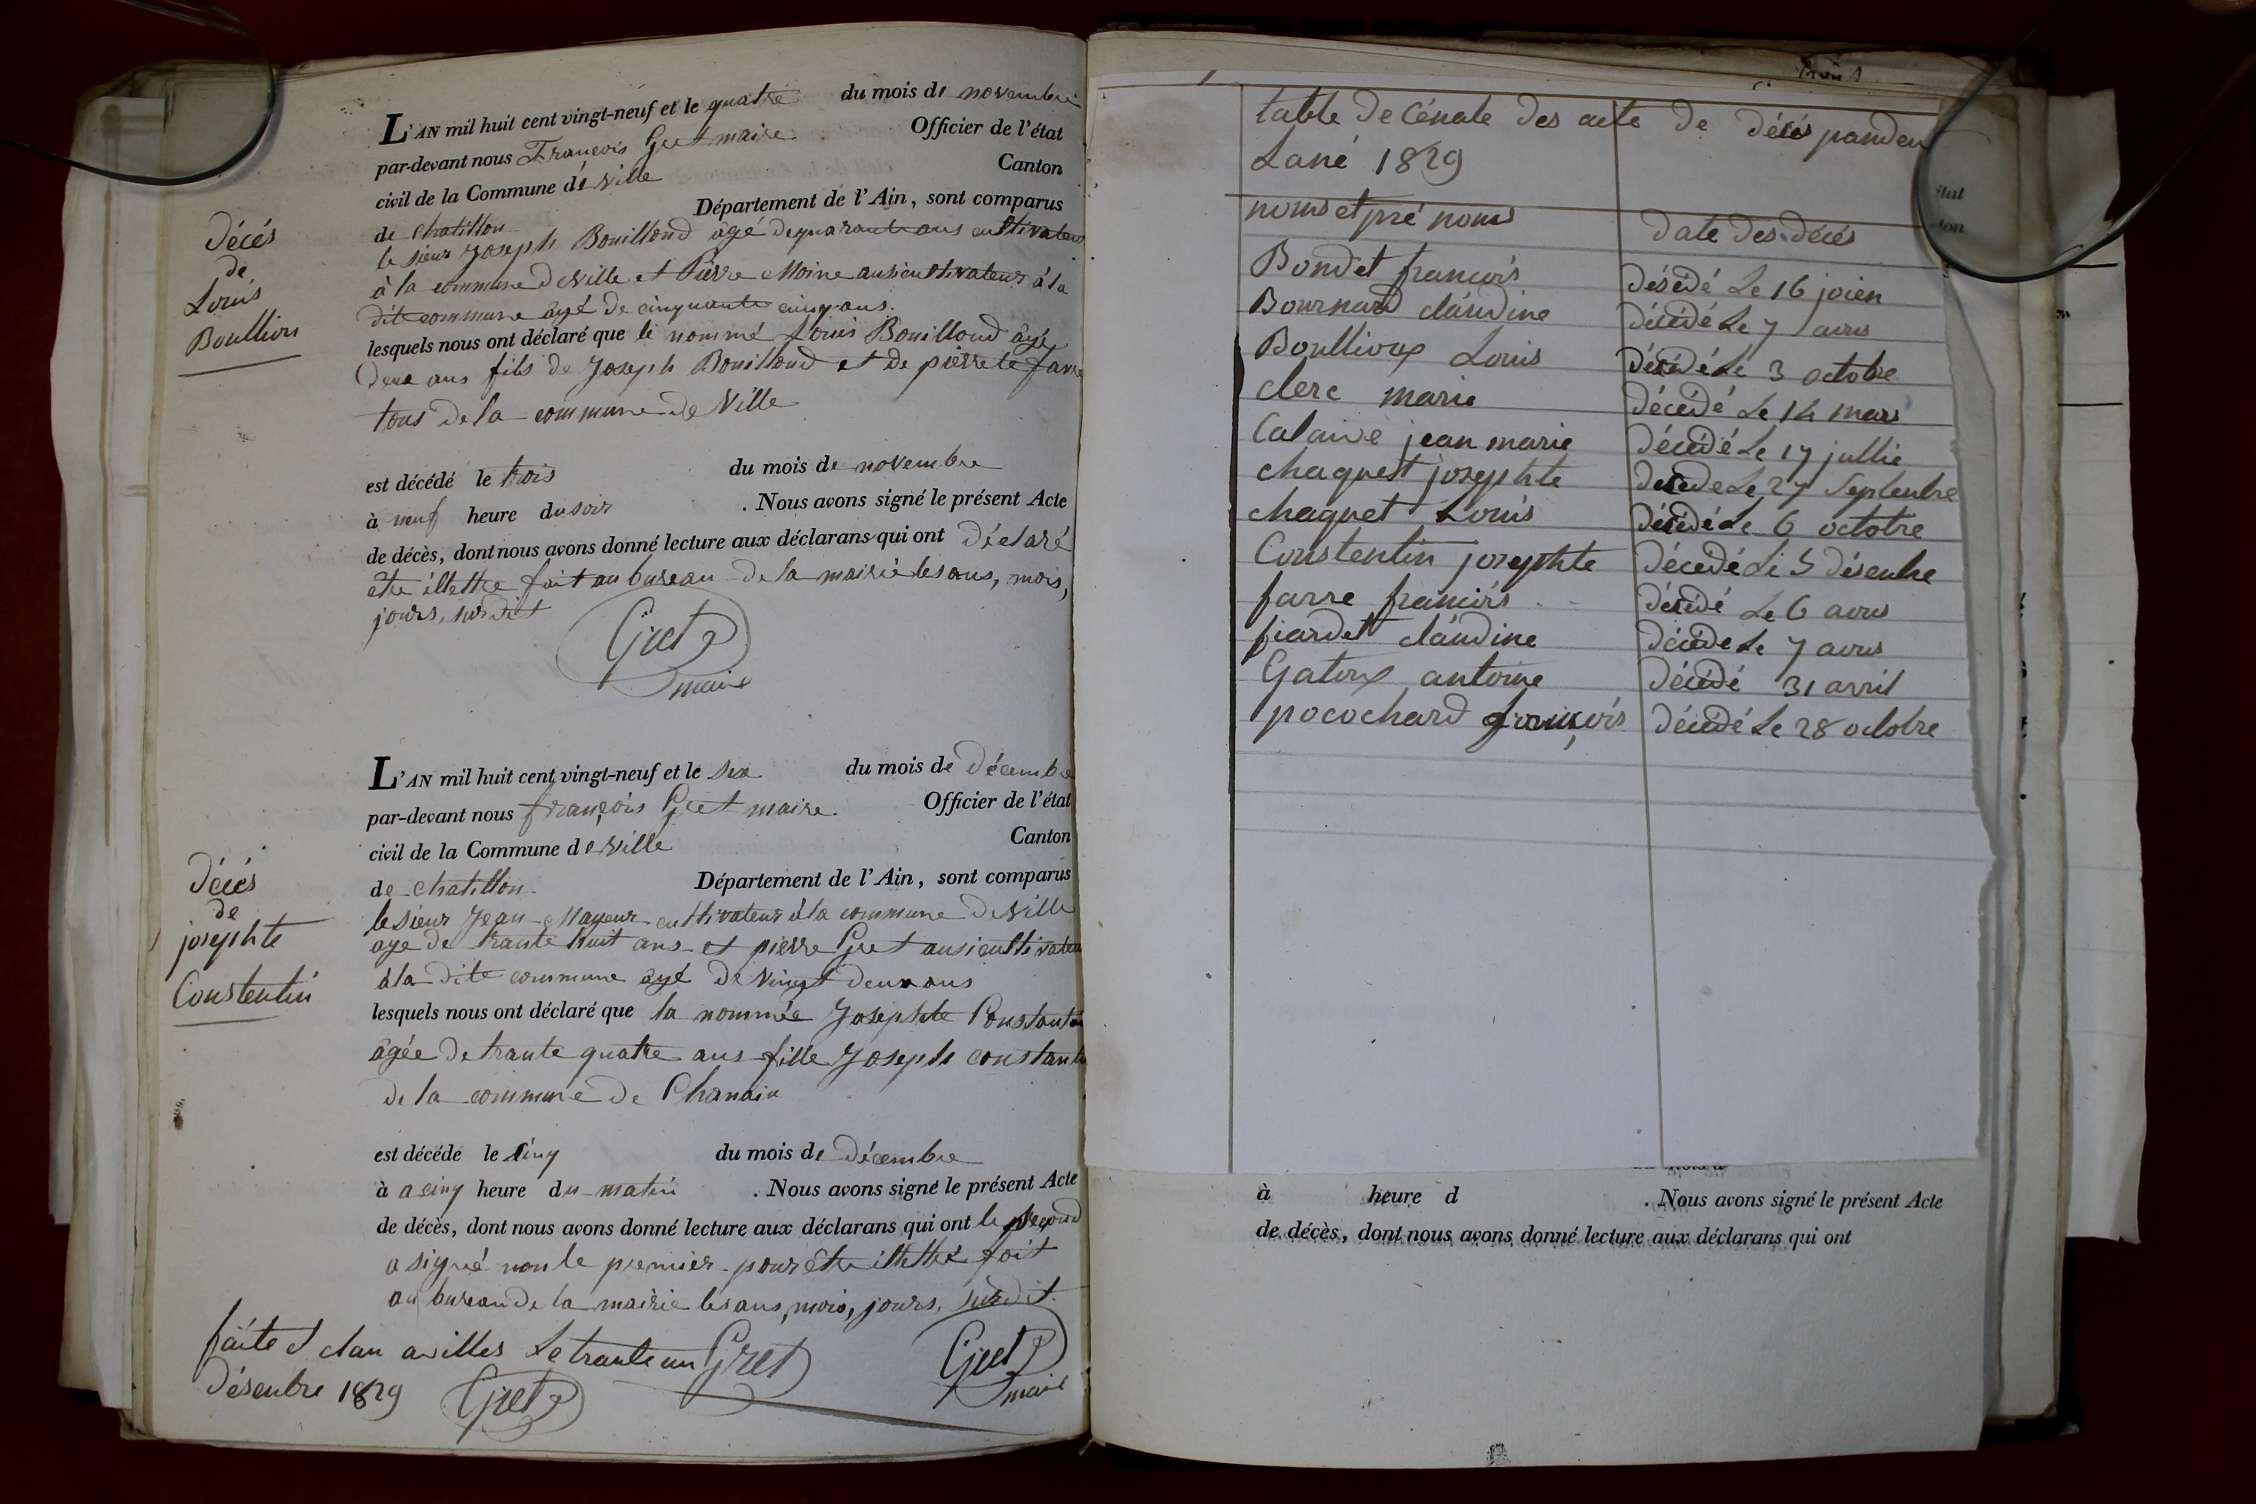 L'AN mil huit cent vingt-neuf et le quatre du mois de novembre
par-devant nous François Gret maire Officier de l'état
civil de la Commune de Ville Canton
de chatillon Département de l'Ain, sont comparus
le sieur Joseph Bouilloud agé de quarante ans cultivateur
à la commune de Ville et Pierre Moine ausi cultivateur à la
dite commune âgé de cinquante cinq ans.
lesquels nous ont déclaré que le nommé Louis Bouilloud âgé
deux ans fils de Joseph Bouilloud et de pierrete farre
tous de la commune de Ville
est décédé le trois du mois de novembre
à neuf heure du soir . Nous avons signé le présent Acte
de décès, dont nous avons donné lecture aux déclarans qui ont déclaré
etre illettre fait au bureau de la mairie les ans, mois,
jours, susdit
Gret
maire
décés
de
Louis
Boullion
L'AN mil huit cent vingt-neuf et le six du mois de Décembre
par-devant nous françois Gret maire Officier de l'état
civil de la Commune de Ville Canton
de chatillon Département de l'Ain, sont comparus
le sieur Jean Mayeur cultivateur à la commune de Ville
age de trante huit ans et pierre Gret ausi cultivateur
à la dite commune âgé de vingt deux ans
lesquels nous ont déclaré que la nommée Josephte Constantin
âgée de trante quatre ans fille Joseph constantin
de la commune de Chanain
est décédé le cinq du mois de Décembre
à a cinq heure du matin . Nous avons signé le présent Acte
de décès, dont nous avons donné lecture aux déclarans qui ont le second
a signé non le premier pour être illettré fait
au bureau de la mairie les ans, mois, jours, susdit.
décés
de
josephte
Constentin
faite et clau a villes Le trante un Gret
désenbre 1829 Gret
Gret
maire
table decénale des acte de décés panden
Lané 1829
noms et pré noms date des décés
Bondet francois désédé Le 16 joien
Bournard claudine décédé Le 7 avrus
Boullioux Louis désédé Le 3 octobre
clerc marie décédé Le 14 mars
Calaive jean marie décédé Le 17 jullie
chaquest josephte désede Le 27 Septenbre
chaquet Louis désédé Le 6 octobre
Constentin josephte décedé Le 5 désenbre
farre francois décédé Le 6 avrus
fiardet claudine décéde Le 7 avrus
Gatoux antoine décédé 31 avril
pocochard francois décédé Le 28 octobre
à heure d . Nous avons signé le présent Acte
de décès, dont nous avons donné lecture aux déclarans qui ont